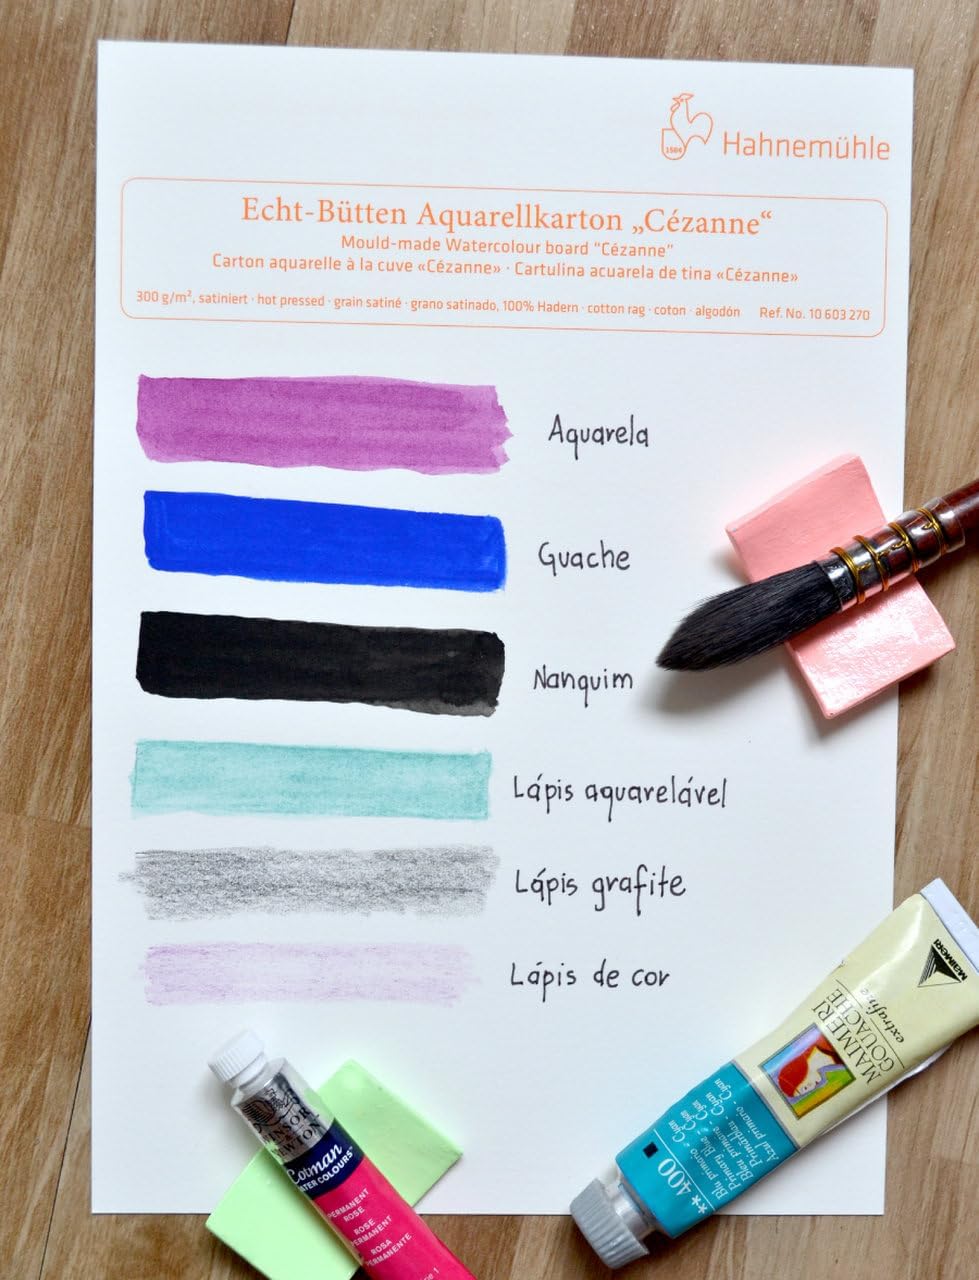 1584
Hahnemühle
Echt-Bütten Aquarellkarton „Cézanne“
Mould-made Watercolour board "Cézanne"
Carton aquarelle à la cuve «Cézanne» · Cartulina acuarela de tina «Cézanne»
300 g/m², satiniert · hot pressed · grain satiné · grano satinado, 100% Hadern · cotton rag · coton · algodón Ref. No. 10 603 270
Aquarela
Guache
Nanquim
Lápis aquarelável
Lápis grafite
Lápis de cor
MAIMERI
MAIMERI
GOUACHE
extrafine
** 400
Blu primario - Cyan
Primary Blue - Cyan
Bleu primaire - Cyan
Primärblau - Cyan
Azul primario - Cyan
WINSOR
& NEWTON
Cotman
WATER COLOURS
PERMANENT
ROSE
ROSE
PERMANENT
ROSA
PERMANENTE